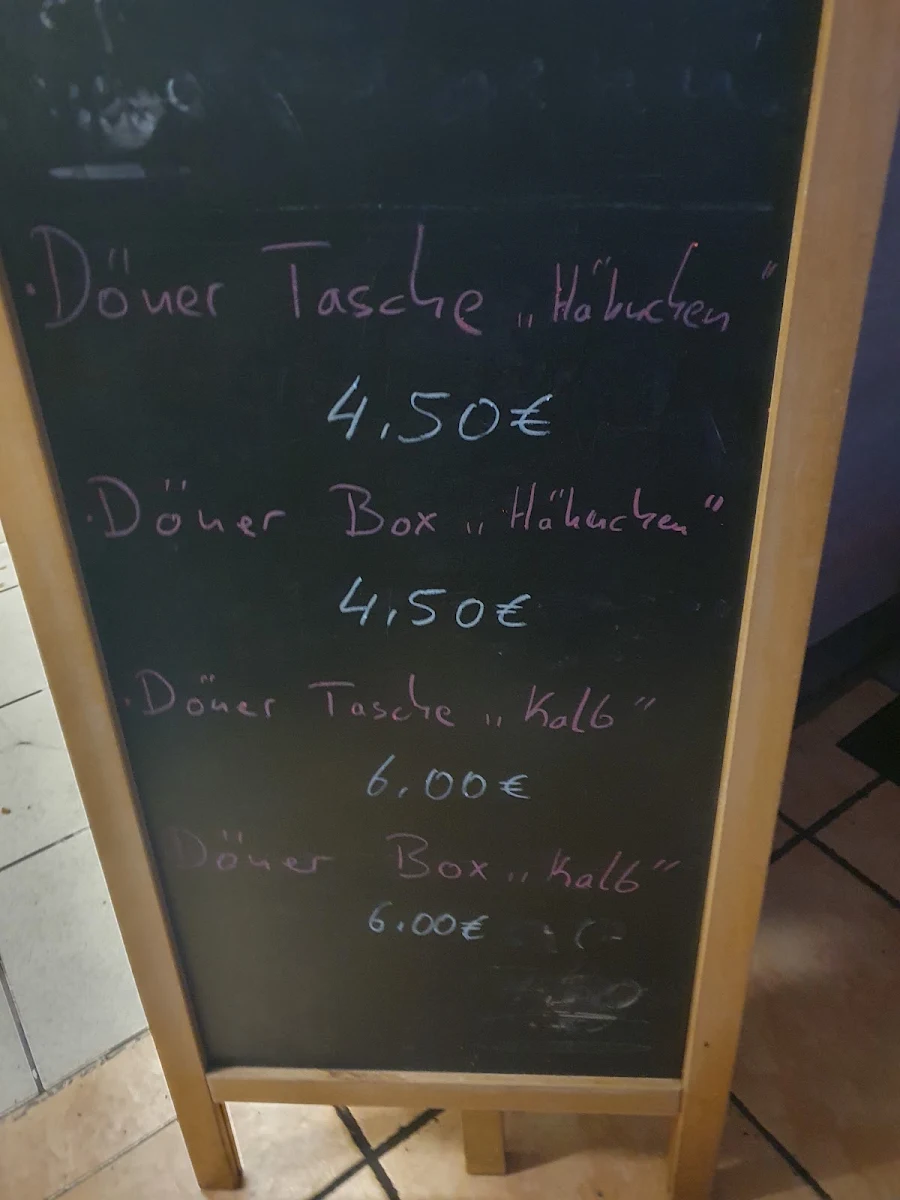 · Döner Tasche „Hähnchen"
4,50€
· Döner Box „Hähnchen"
4,50€
· Döner Tasche „Kalb"
6,00€
Döner Box „Kalb"
6,00€